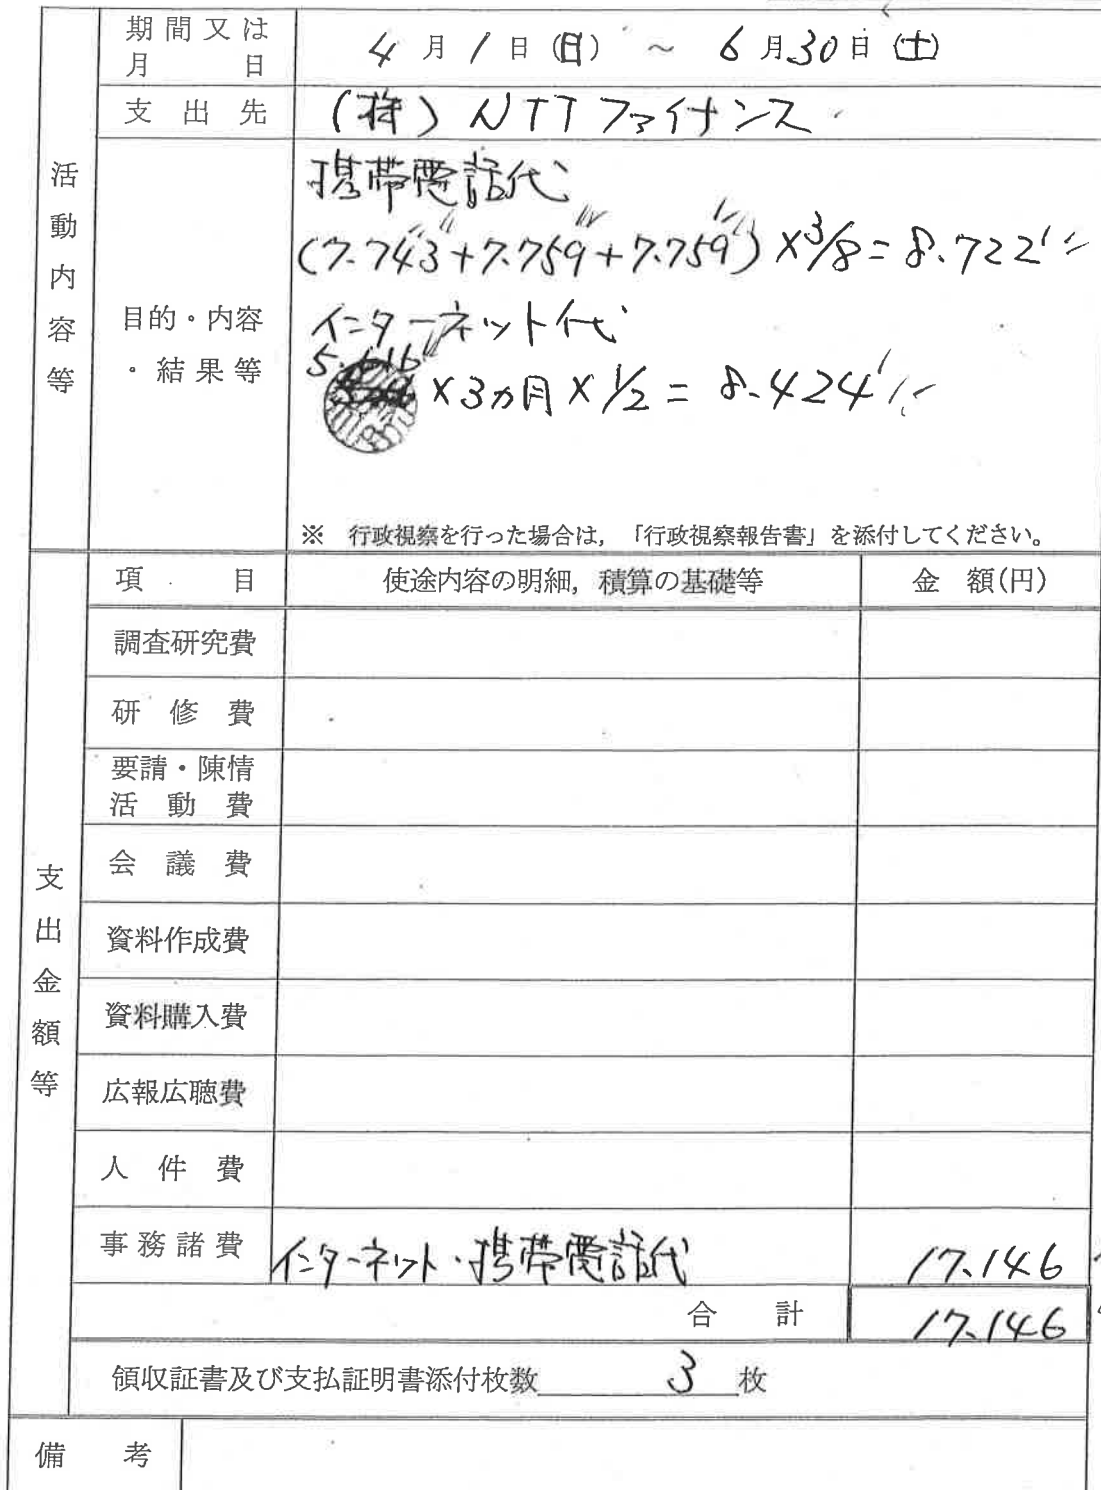 期間又は
月　　日
4月1日(日) ～ 6月30日(土)
支出先
(株) NTTファイナンス
活動内容等
目的・内容
・結果等
携帯電話代
(7.743+7.759+7.759)×3/8=8.722
インターネット代
5.616
×3ヵ月×1/2=8.424
※　行政視察を行った場合は，「行政視察報告書」を添付してください。
支出金額等
項　目　使途内容の明細，積算の基礎等　金　額(円)
調査研究費
研　修　費
要請・陳情
活　動　費
会　議　費
資料作成費
資料購入費
広報広聴費
人　件　費
事務諸費　インターネット・携帯電話代　17.146
合　　計　17.146
領収証書及び支払証明書添付枚数　3　枚
備　　考